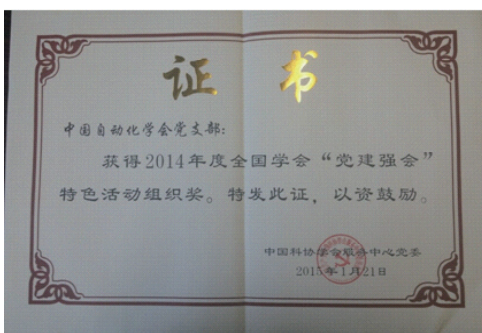 证 书
中国自动化学会党支部：
获得2014年度全国学会“党建强会”
特色活动组织奖。特发此证，以资鼓励。
中国科协学会服务中心党委
2015年1月21日